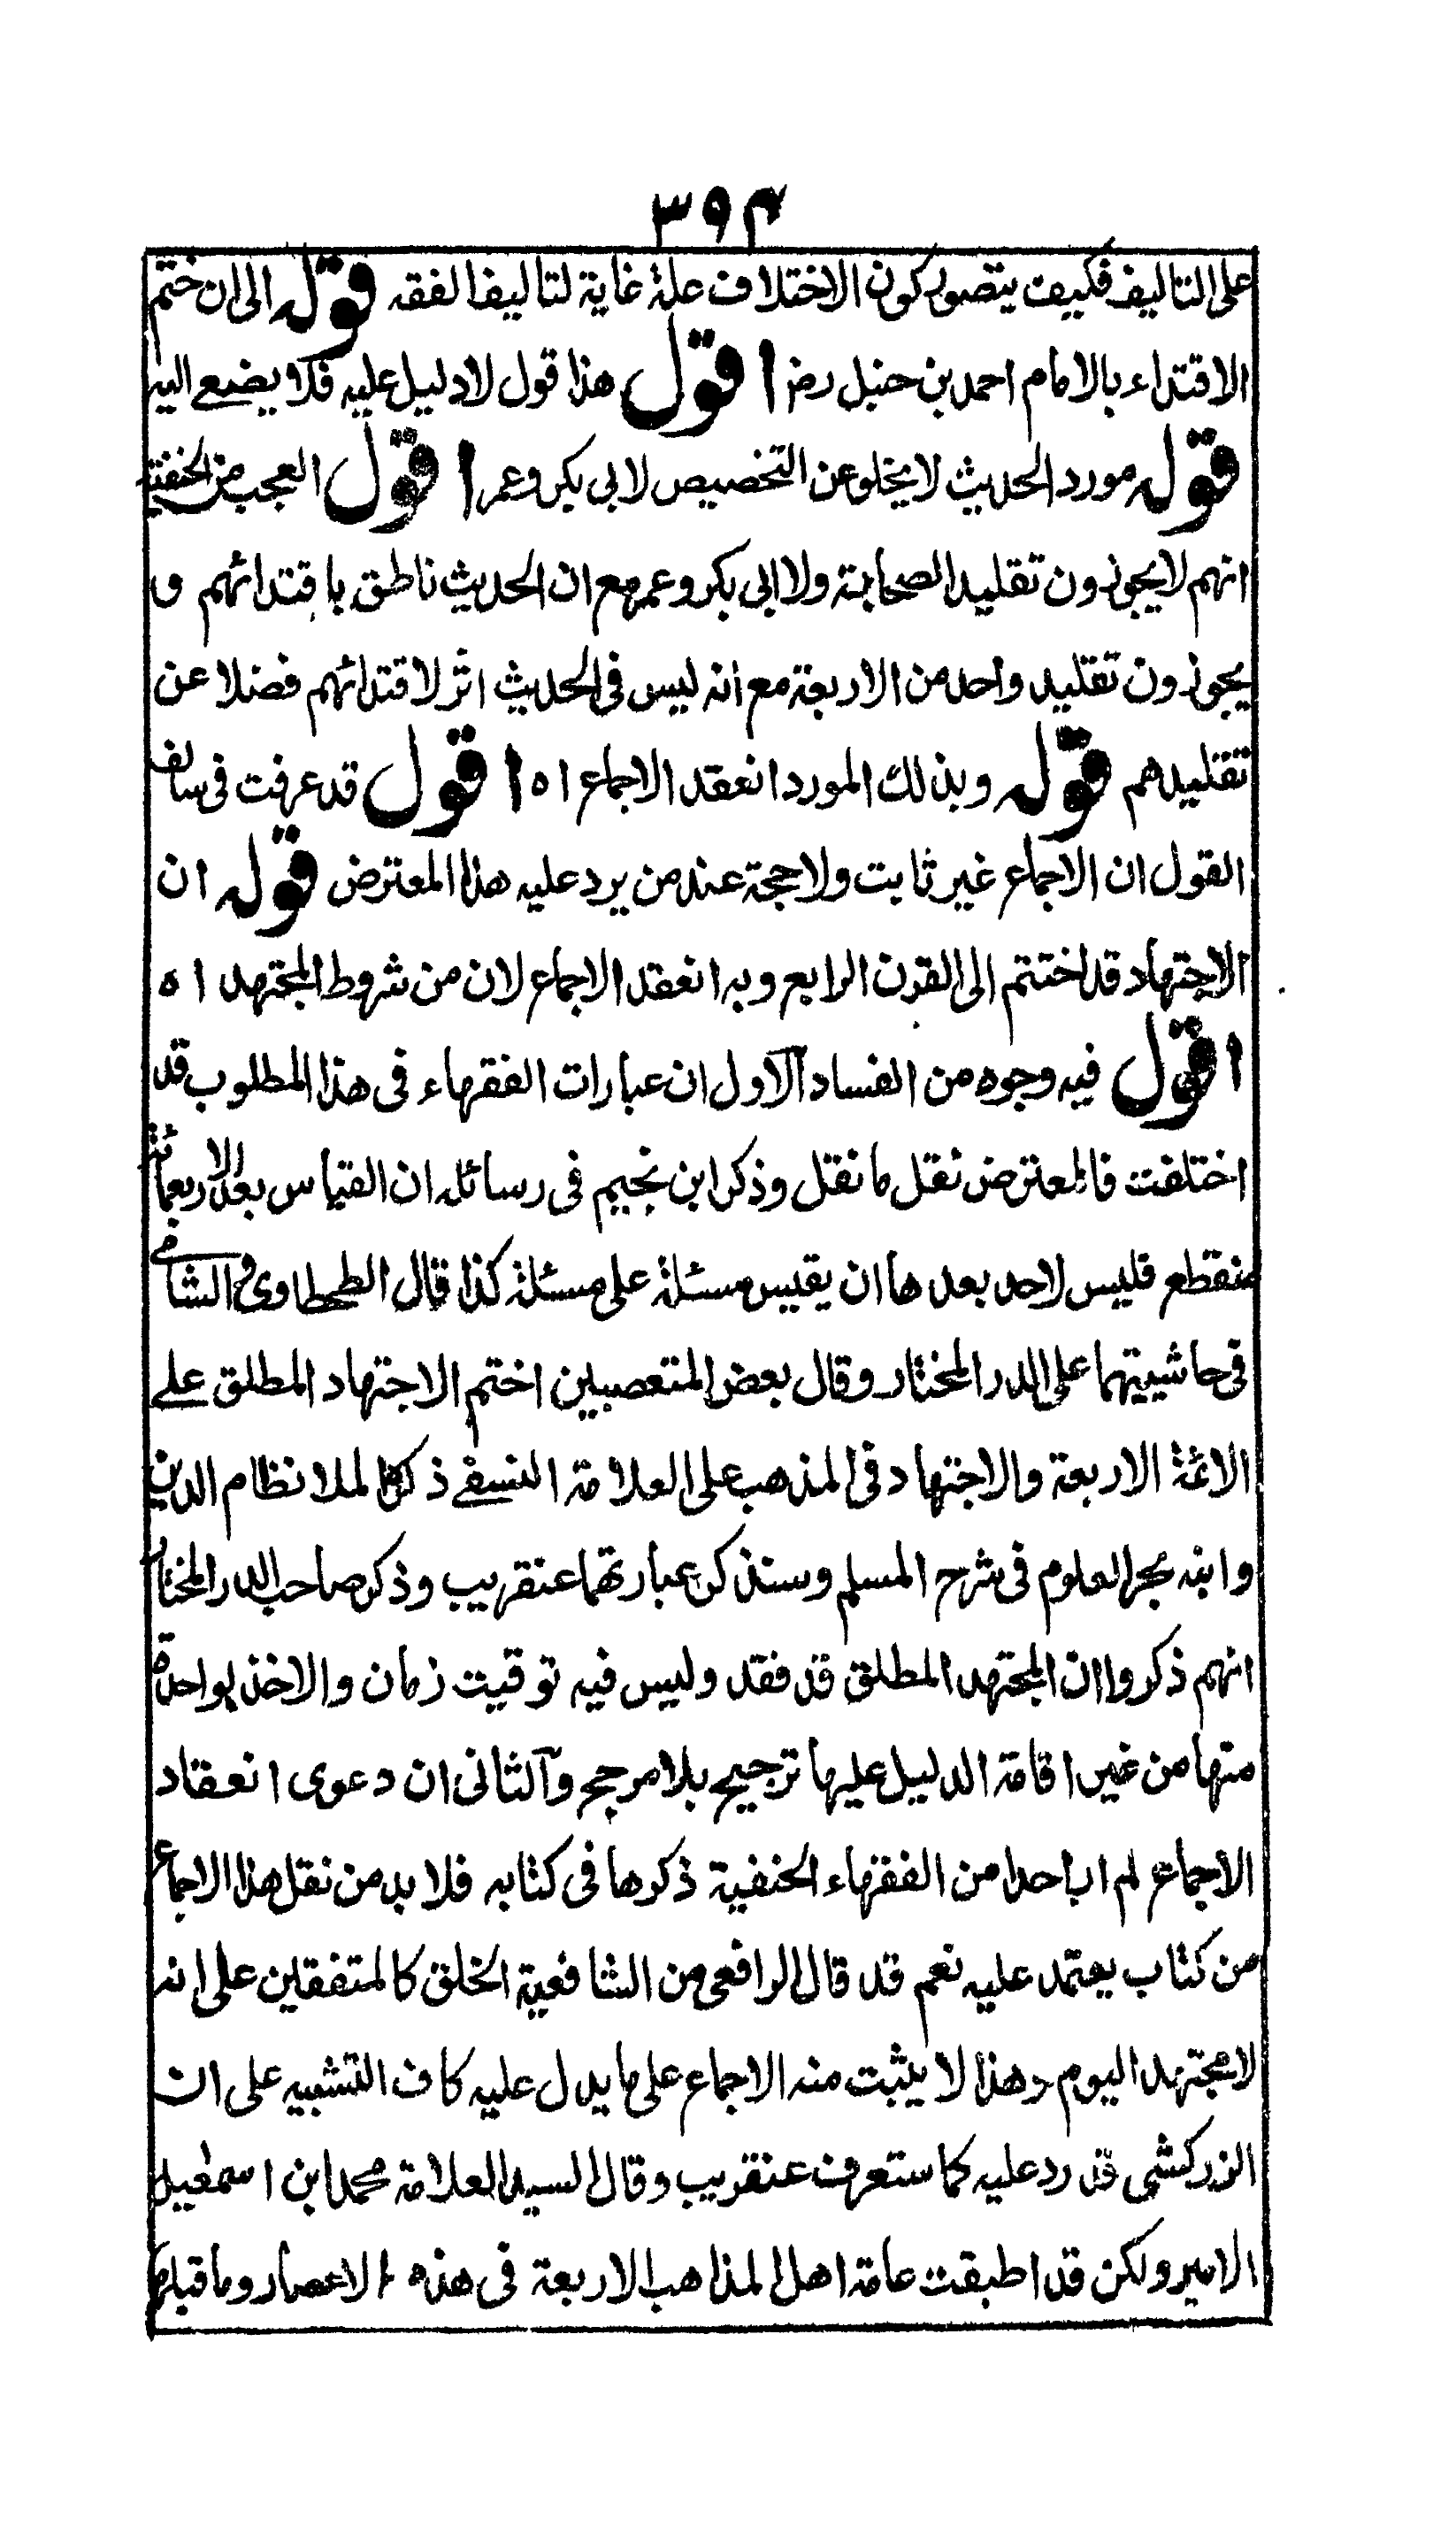 ۳۹۴
على التاليف فكيف يتصور كون الاختلاف علة غاية لتاليف الفقه قوله الى ان ختم
الاقتداء بالامام احمد بن حنبل رض اقول هذا قول لا دليل عليه فلا يضع اليه
قوله مورد الحديث لا يخلو عن التخصيص لابى بكر وعمر اقول العجب من الحنفية
انهم لا يجوزون تقليد الصحابة ولا ابى بكر وعمر مع ان الحديث ناطق باقتدائهم و
يجوزون تقليد واحد من الاربعة مع انه ليس فى الحديث اثر لاقتدائهم فضلا عن
تقليدهم قوله وبذلك المورد انعقد الاجماع اه اقول قد عرفت فى سالف
القول ان الاجماع غير ثابت ولا حجة عند من يرد عليه هذا المعترض قوله ان
الاجتهاد قد اختتم الى القرن الرابع وبه انعقد الاجماع لان من شروط المجتهد اه
اقول فيه وجوه من الفساد آلاول ان عبارات الفقهاء فى هذا المطلوب قد
اختلفت فالمعترض نقل ما نقل وذكر ابن نجيم فى رسائله ان القياس بعد الاربعمائة
منقطع فليس لاحد بعدها ان يقيس مسئلة على مسئلة كذا قال الطحطاوى والشامے
فى حاشيتيهما على الدر المختار وقال بعض المتعصبين اختم الاجتهاد المطلق علے
الائمة الاربعة والاجتهاد فى المذهب على العلامة النسفے ذكره الملا نظام الدين
وابنه بحر العلوم فى شرح المسلم وسنذكر عبارتهما عنقريب وذكر صاحب الدر المختار
انهم ذكروا ان المجتهد المطلق قد فقد وليس فيه توقيت زمان والاخذ بواحدة
منها من غير اقامة الدليل عليها ترجيح بلا مرجح وآلثانى ان دعوى انعقاد
الاجماع لم ار احدا من الفقهاء الحنفية ذكرها فى كتابه فلا بد من نقل هذا الاجماع
من كتاب يعتمد عليه نعم قد قال الرافعى من الشافعية الخلق كالمتفقين على انه
لا مجتهد اليوم وهذا لا يثبت منه الاجماع على ما يدل عليه كاف التشبيه على ان
الزركشى قد رد عليه كما ستعرف عنقريب وقال السيد العلامة محمد ابن اسمعيل
الامير ولكن قد اطبقت عامة اهل المذاهب الاربعة فى هذه الاعصار وما قبلها